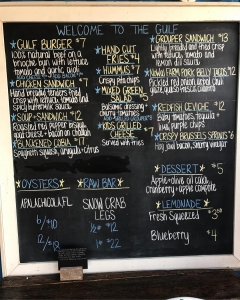 WELCOME TO THE GULF
GULF BURGER *7
100% natural beef on a
brioche bun with lettuce
tomato and garlic
CHICKEN SANDWICH *7
Hand breaded tenders fried
crisp with lettuce, tomato and
SOUP + SANDWICH *12
Roasted red pepper bisque
and cheese + bacon on challah
BLACKENED COBIA *17
Spaghetti squash, arugula + citrus
HAND CUT
FRIES *4
HUMMUS *7
Crispy pita chips
MIXED GREEN
SALAD *5
Balsamic dressed
cherry tomatoes
KIDS GRILLED
CHEESE *7
Served with fries
GROUPER SANDWICH *13
Lightly breaded and fried crisp
with lettuce, tomato and
lemon dill sauce
PORK BELLY TACOS *12
Pickled red onion
glaze, queso fresco
REDFISH CEVICHE *12
Baby tomatoes, tequila +
lime, purple chips
CRISPY BRUSSELS SPROUTS *6
Soy, bacon, honey vinegar
OYSTERS
APALACHICOLA, FL
6/$10
12/$18
RAW BAR
SNOW CRAB
LEGS
½# $12
1# $22
DESSERT *5
Apple + olive oil cake
Cranberry + apple compote
LEMONADE
Fresh Squeezed $3.00
Blueberry $4